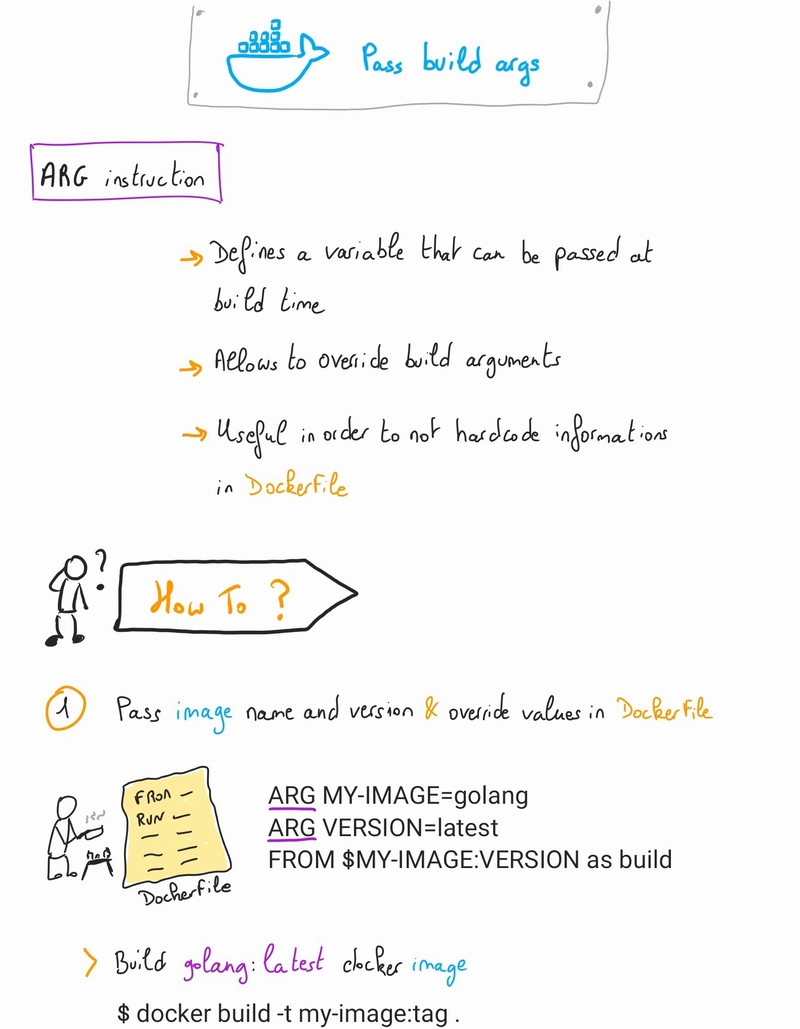 Pass build args
ARG instruction
→ Defines a variable that can be passed at
build time
→ Allows to override build arguments
→ Useful in order to not hardcode informations
in Dockerfile
?
How To ?
1 Pass image name and version & override values in Dockerfile
FROM
RUN
Dockerfile
ARG MY-IMAGE=golang
ARG VERSION=latest
FROM $MY-IMAGE:VERSION as build
> Build golang:latest docker image
$ docker build -t my-image:tag .